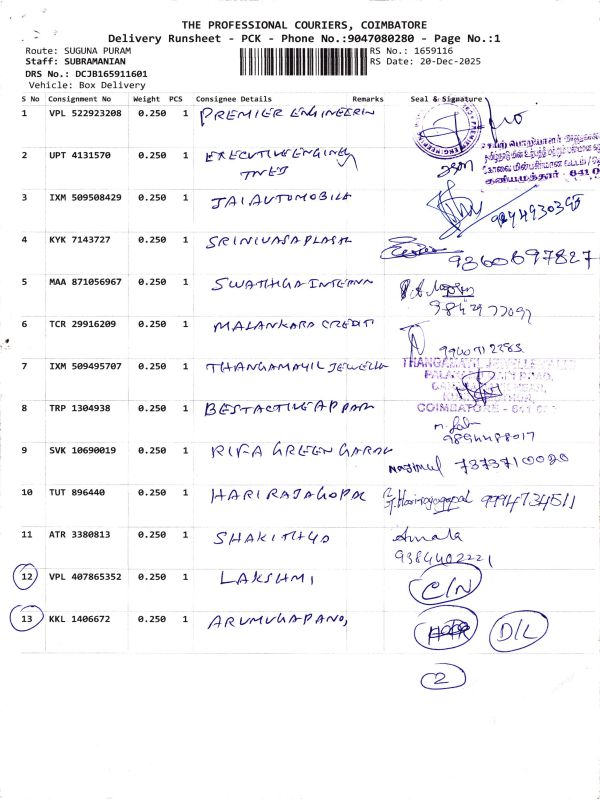 THE PROFESSIONAL COURIERS, COIMBATORE
Delivery Runsheet - PCK - Phone No.:9047080280 - Page No.:1
Route: SUGUNA PURAM RS No.: 1659116
Staff: SUBRAMANIAN RS Date: 20-Dec-2025
DRS No.: DCJB165911601
Vehicle: Box Delivery
S No Consignment No Weight PCS Consignee Details Remarks Seal & Signature
1 VPL 522923208 0.250 1 PREMIER ENGINEERIN
2 UPT 4131570 0.250 1 EXECUTIVE ENGINEY
3 IXM 509508429 0.250 1 JAI AUTOMOBILE
4 KYK 7143727 0.250 1 SRINIVASA PLASH
9360697827
5 MAA 871056967 0.250 1 SWATHGA INTERNN
9842977092
6 TCR 29916209 0.250 1 MALANKARA CREDIT
7 IXM 509495707 0.250 1 THANGAMAYIL JEWELLE
THANGAMAYIL JEWELLE
COIMBATORE - 641
8 TRP 1304938 0.250 1 BESTACTIVE APPAR
9894488017
9 SVK 10690019 0.250 1 RIFA GREEN GARDE
7373710020
10 TUT 896440 0.250 1 HARI RAJAGOPAL Harirajagopal 9994734511
11 ATR 3380813 0.250 1 SHAKITHYA Amala
9384402221
12 VPL 407865352 0.250 1 LAKSHMI C/N
13 KKL 1406672 0.250 1 ARUMUGAPAND, D/L
2